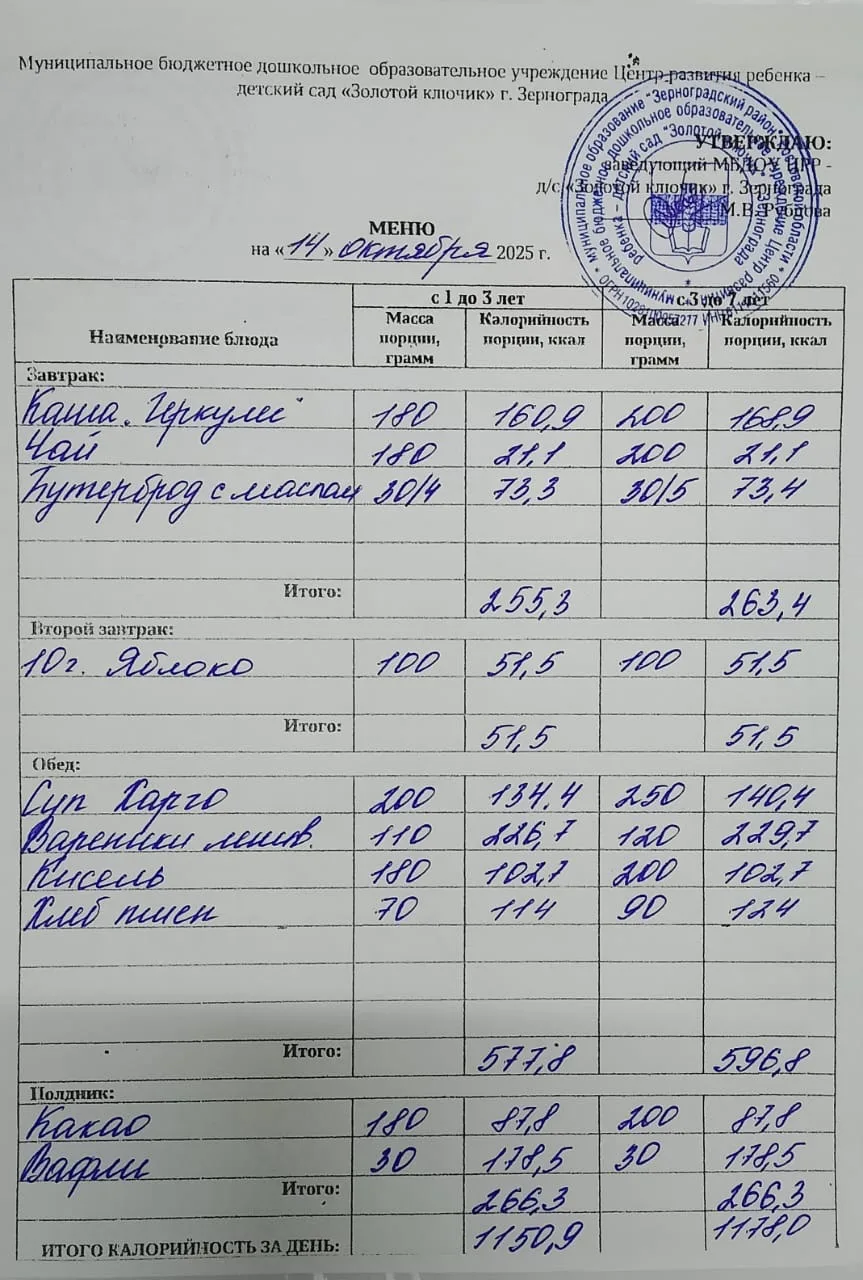 Муниципальное бюджетное дошкольное образовательное учреждение Центр развития ребенка –
детский сад «Золотой ключик» г. Зернограда
УТВЕРЖДАЮ:
заведующий МБДОУ ЦРР -
д/с «Золотой ключик» г. Зернограда
М.В. Рублова
МЕНЮ
на « 14 » октября 2025 г.
Наименование блюда с 1 до 3 лет с 3 до 7 лет
Масса порции, грамм Калорийность порции, ккал Масса порции, грамм Калорийность порции, ккал
Завтрак:
Каша "Геркулес" 180 160,9 200 168,9
Чай 180 21,1 200 21,1
Бутерброд с маслом 30/4 73,3 30/5 73,4
Итого: 255,3 263,4
Второй завтрак:
10г. Яблоко 100 51,5 100 51,5
Итого: 51,5 51,5
Обед:
Суп Харчо 200 134,4 250 140,4
Вареники ленив. 110 226,7 120 229,7
Кисель 180 102,7 200 102,7
Хлеб пшен 70 114 90 124
Итого: 577,8 596,8
Полдник:
Какао 180 87,8 200 87,8
Вафли 30 178,5 30 178,5
Итого: 266,3 266,3
ИТОГО КАЛОРИЙНОСТЬ ЗА ДЕНЬ: 1150,9 1178,0